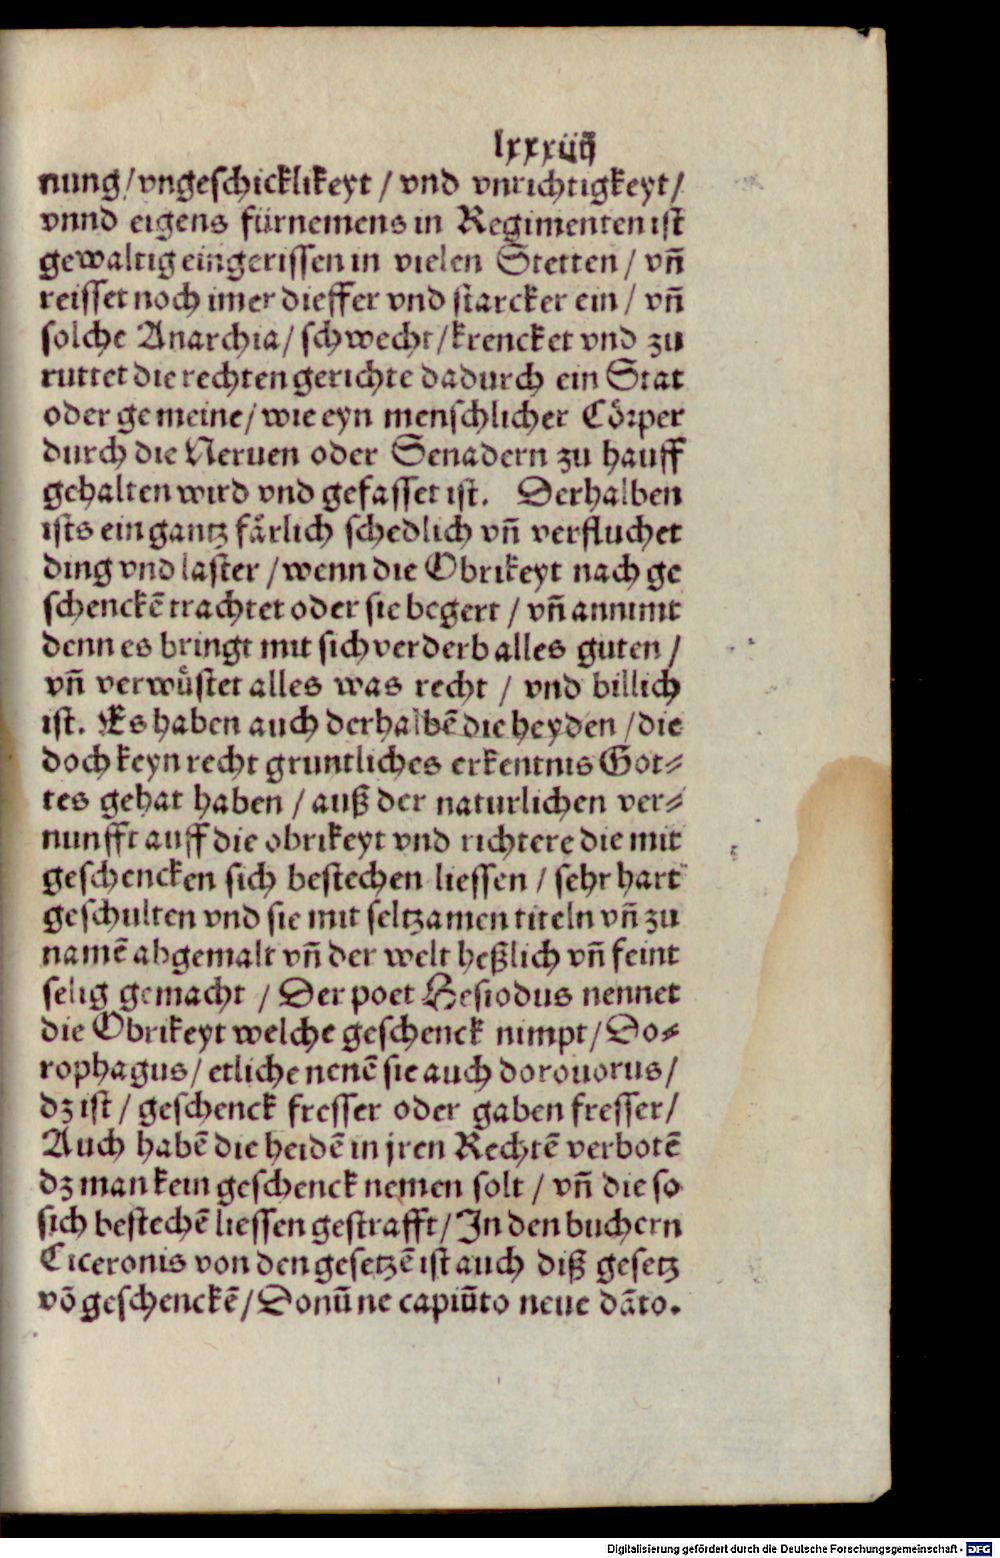 lxxxiiij
nung/vngeschicklikeyt / vnd vnrichtigkeyt/
vnnd eigens fürnemens in Regimenten ist
gewaltig eingerissen in vielen Stetten / vñ
reisset noch imer dieffer vnd starcker ein / vñ
solche Anarchia/ schwecht/krencket vnd zu
ruttet die rechten gerichte dadurch ein Stat
oder gemeine/ wie eyn menschlicher Cörper
durch die Neruen oder Senadern zu hauff
gehalten wird vnd gefasset ist. Derhalben
ists ein gantz färlich schedlich vñ verfluchet
ding vnd laster /wenn die Obrikeyt nach ge
schenckē trachtet oder sie begert / vñ annimt
denn es bringt mit sich verderb alles guten /
vñ verwüstet alles was recht / vnd billich
ist. Es haben auch derhalbē die heyden /die
doch keyn recht gruntliches erkentnis Got⸗
tes gehat haben / auß der naturlichen ver⸗
nunfft auff die obrikeyt vnd richtere die mit
geschencken sich bestechen liessen / sehr hart
geschulten vnd sie mit seltzamen titeln vñ zu
namē abgemalt vñ der welt heßlich vñ feint
selig gemacht / Der poet Hesiodus nennet
die Obrikeyt welche geschenck nimpt/ Do⸗
rophagus/ etliche nenē sie auch dorouorus/
dz ist / geschenck fresser oder gaben fresser/
Auch habē die heidē in jren Rechtē verbotē
dz man kein geschenck nemen solt / vñ die so
sich bestechē liessen gestrafft/ In den buchern
Ciceronis von den gesetzē ist auch diß gesetz
vō geschenckē/ Donū ne capiūto neue dāto.
Digitalisierung gefördert durch die Deutsche Forschungsgemeinschaft - DFG